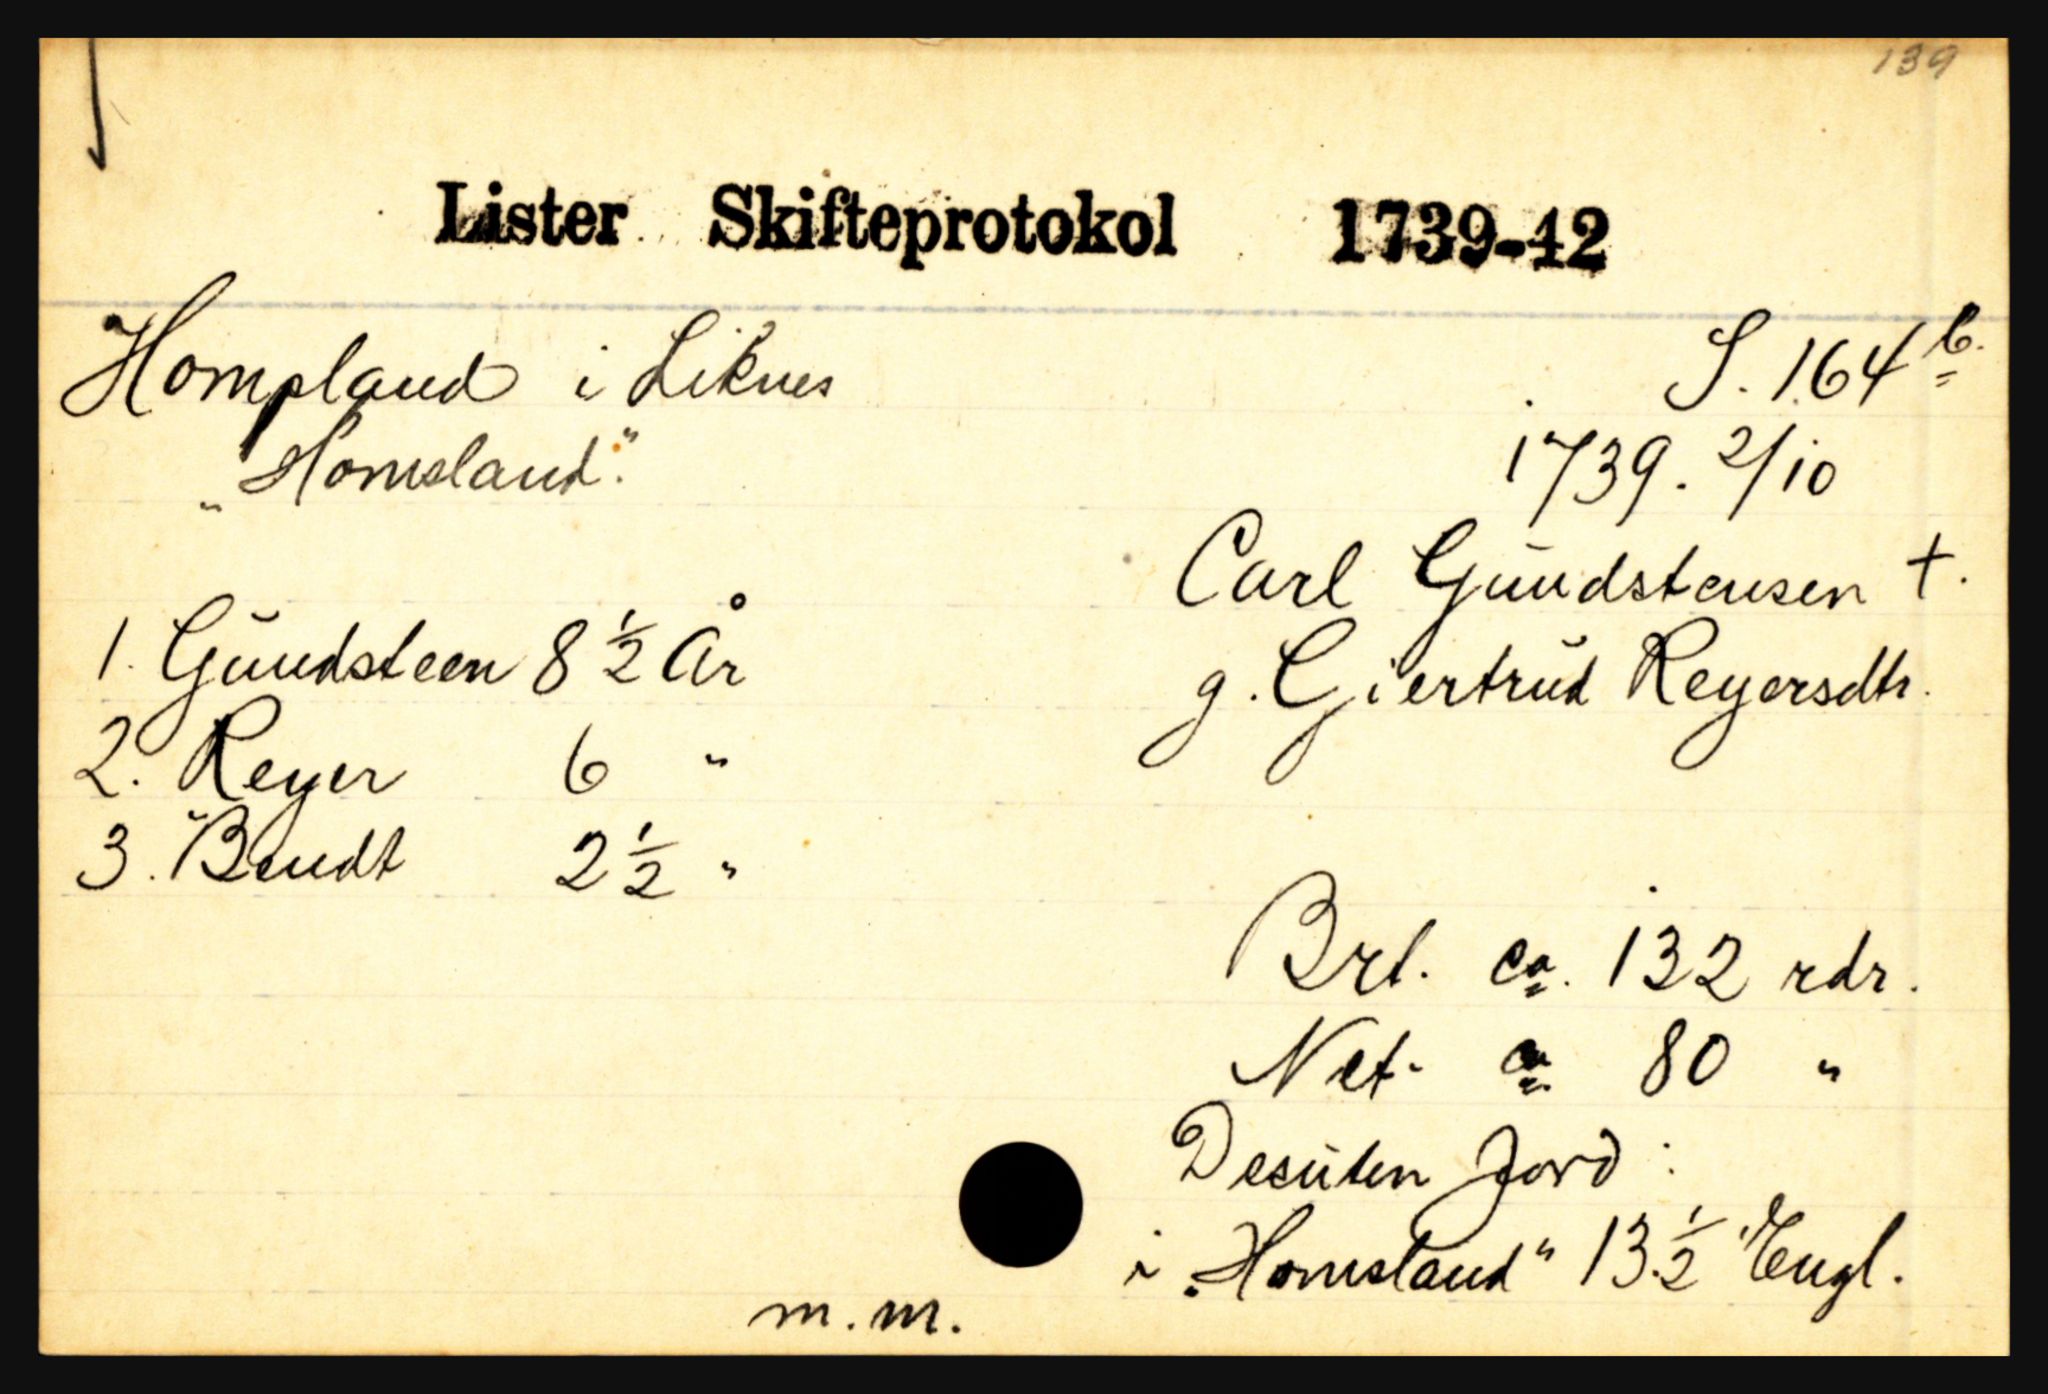 139
Lister Skifteprotokol 1739-42
Hompland i Liknes
S. 164 b.
"Homsland".
1739. 2/10
Carl Gundstensen †.
g. Giertrud Reyersdtr.
1. Gundsteen 8 1/2 År
2. Reyer 6 "
3. Bendt 2 1/2 "
Brt. ca. 132 rdr.
Net. ca. 80 "
Desuten Jord :
i "Homsland" 13 1/2 Engl.
m.m.